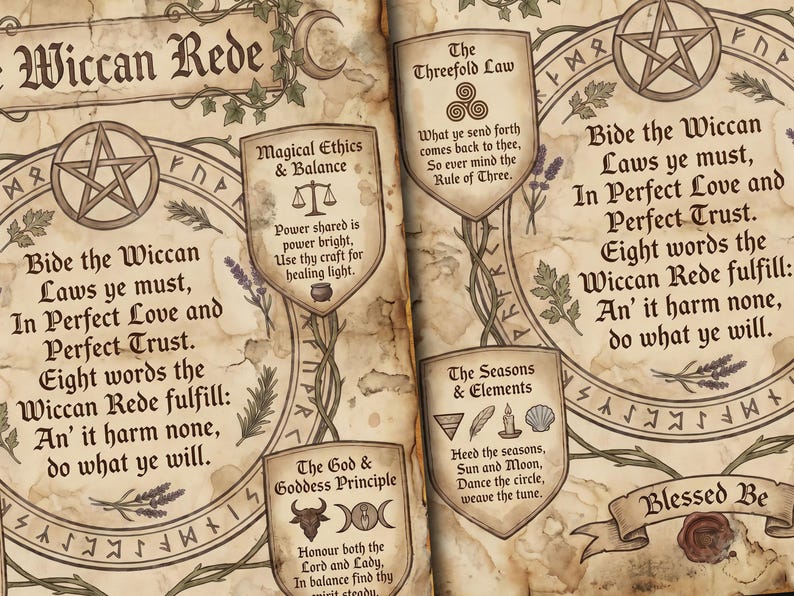 Wiccan Rede
Bide the Wiccan
Laws ye must,
In Perfect Love and
Perfect Trust.
Eight words the
Wiccan Rede fulfill:
An' it harm none,
do what ye will.
Magical Ethics
& Balance
Power shared is
power bright,
Use thy craft for
healing light.
The God &
Goddess Principle
Honour both the
Lord and Lady,
In balance find thy
spirit steady.
The
Threefold Law
What ye send forth
comes back to thee,
So ever mind the
Rule of Three.
The Seasons
& Elements
Heed the seasons,
Sun and Moon,
Dance the circle,
weave the tune.
Bide the Wiccan
Laws ye must,
In Perfect Love and
Perfect Trust.
Eight words the
Wiccan Rede fulfill:
An' it harm none,
do what ye will.
Blessed Be